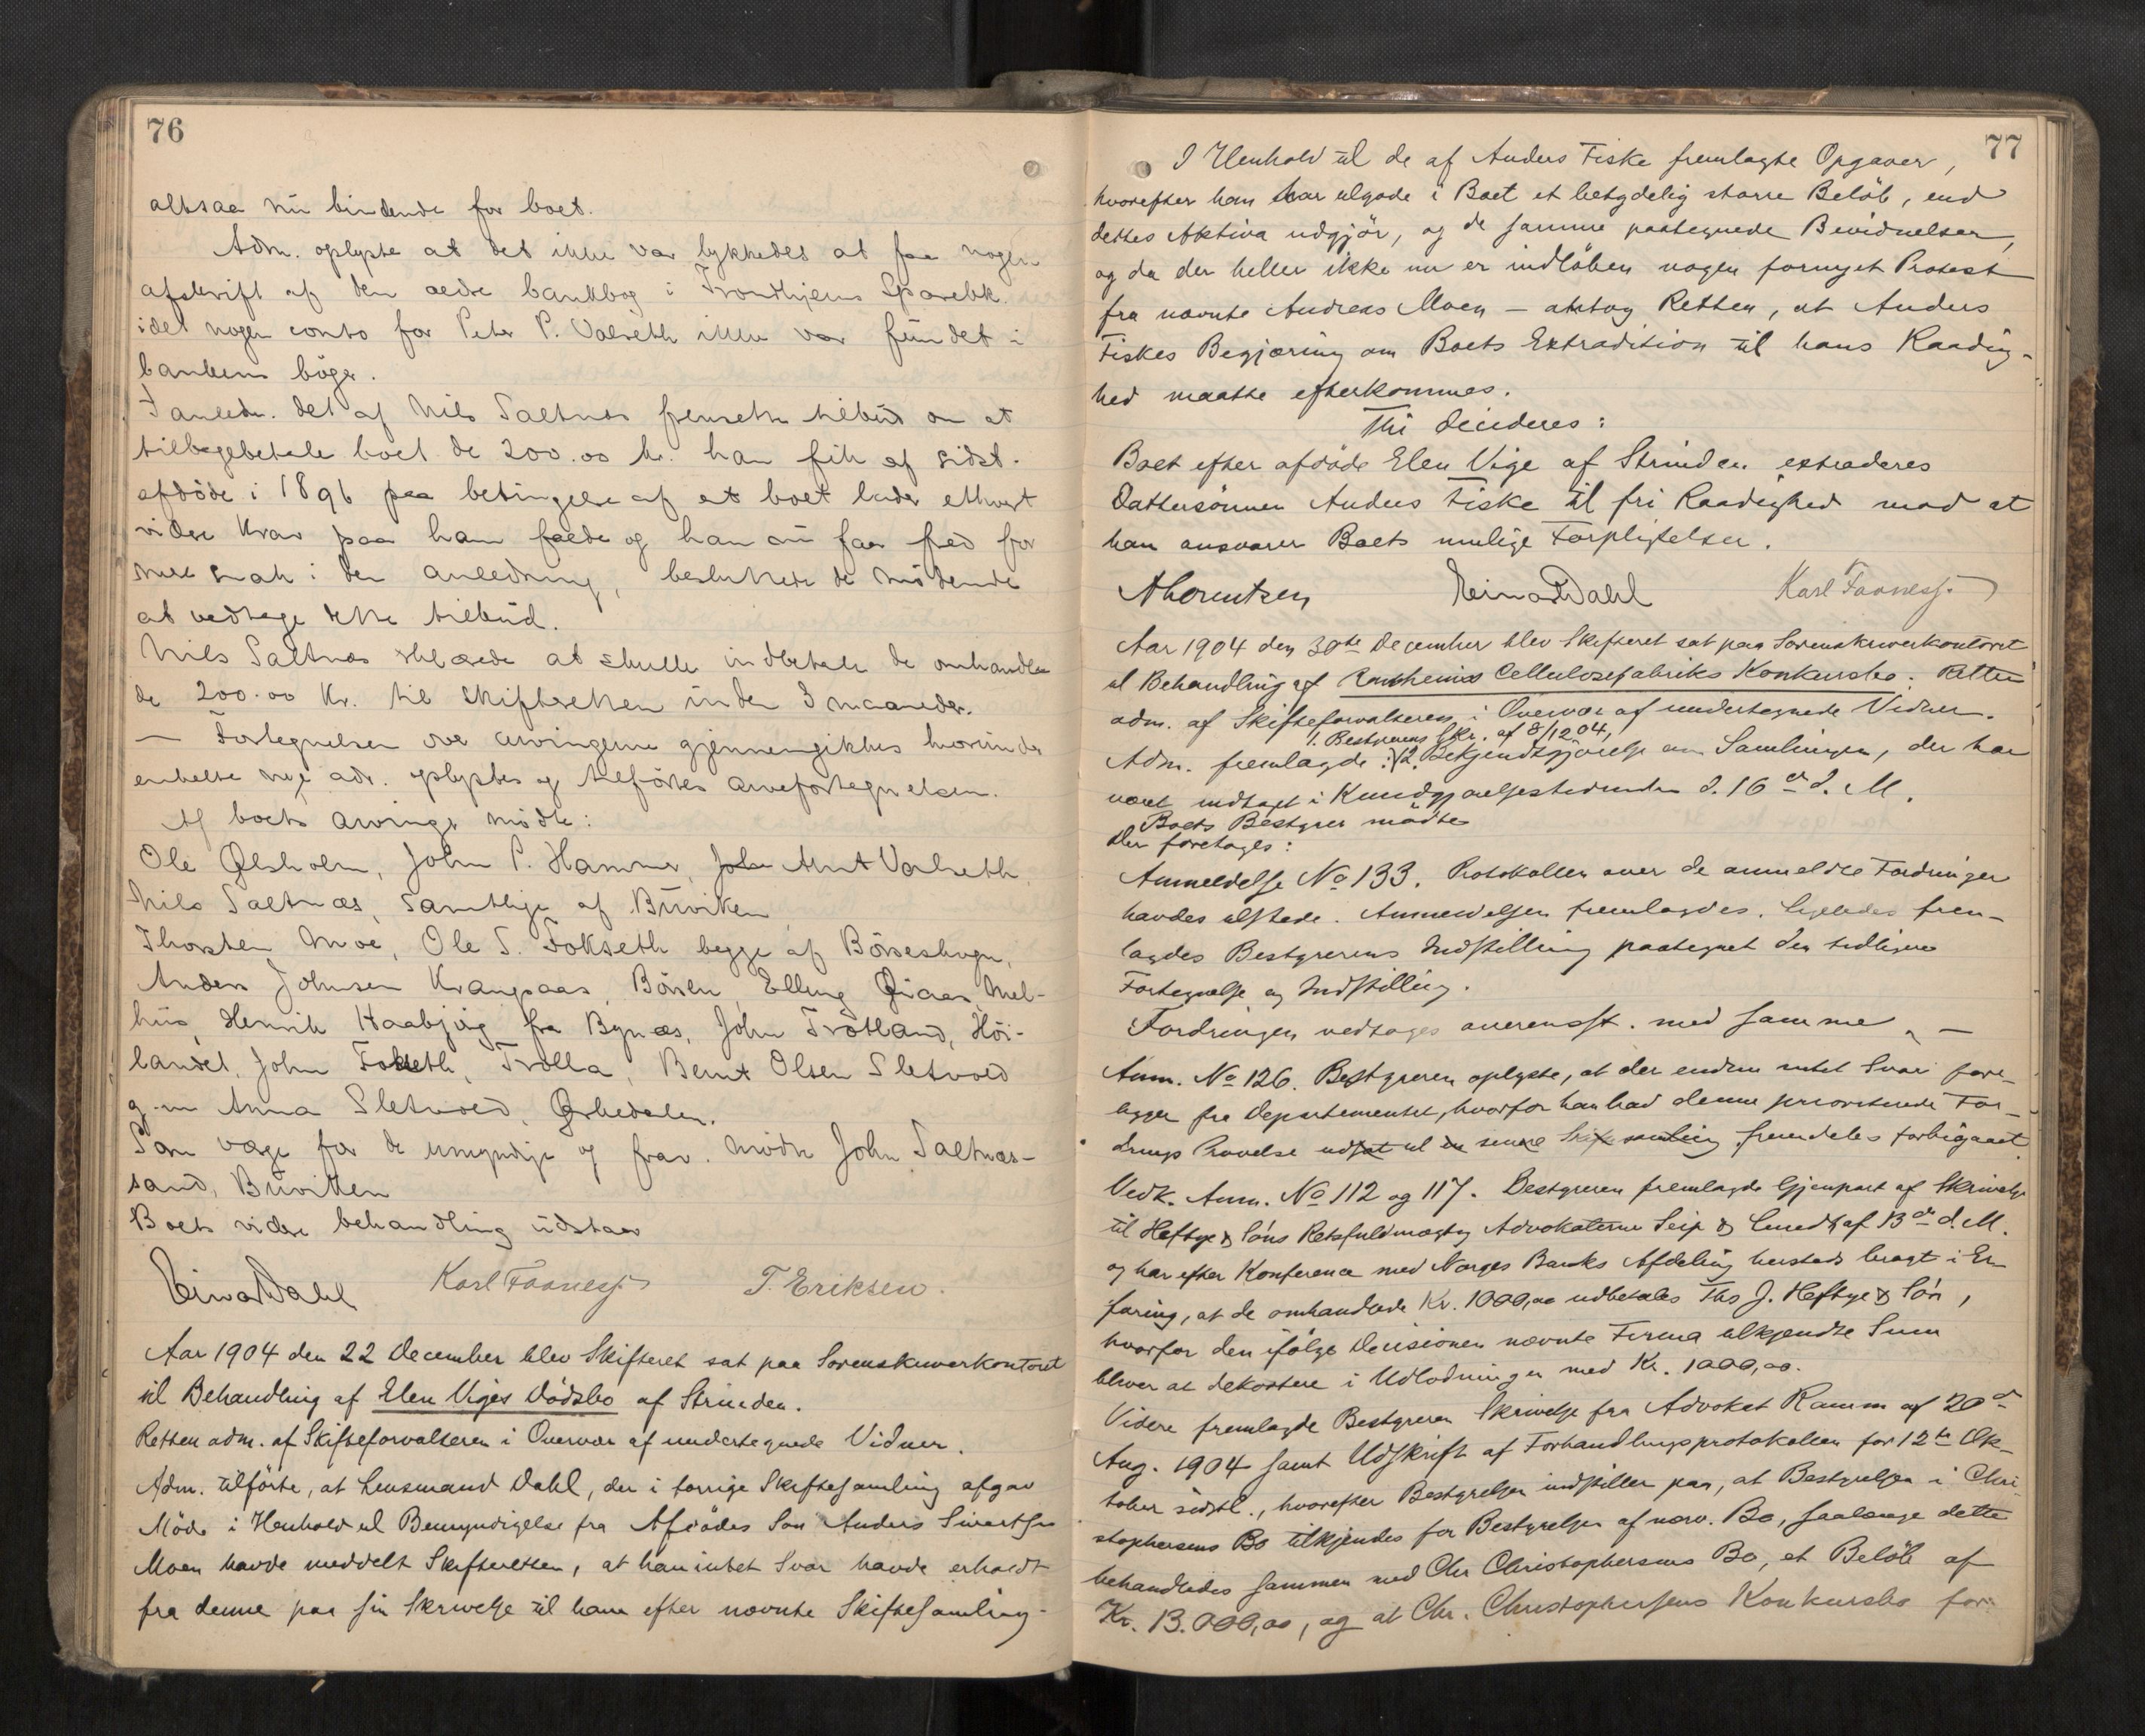 76
altsaa nu bindende for boet.
Adm. oplyste at det ikke var lykkedes at faa nogen
afskrift af den ældre bankbog i Trondhjems Sparebk.
idet nogen conto for Peter P. Valseth ikke var fundet i
bankens bøger.
I anledn. det af Nils Saltnæs fremsatte tilbud om at
tilbagebetale boet de 200.00 kr. han fik af sidst-
afdöde i 1896 paa betingelse af at boet lader ethvert
videre krav paa ham falde og han nu faar fred for
mere snak i den anledning, besluttede de mödende
at vedtage dette tilbud.
Nils Saltnæs erklærede at skulle indbetale de omhandle
de 200.00 Kr. til skifteretten inden 3 maaneder.
— Fortegnelsen over arvingerne gjennemgikkes hvorunder
enkelte nye adr. oplystes og tilförtes arvefortegnelsen.
Af boets arvinger mödte:
Ole Ølsholm, John P. Hammer, John Arnt Valseth,
Nils Saltnæs, samtlige af Buviken
Thorsten Moe, Ole S. Fokseth begge af Börseskogn,
Anders Johnsen Krangsaas, Börsen, Elling Øiaas, Mel-
hus, Henrik Haabjörg fra Bynæs, John Trötland, Höi-
landet, John Fokseth, Trolla, Bernt Olsen Sletvold
g.m Anna Sletvold, Ørkedalen.
Som værge for de umyndige og frav. mödte John Saltnæs-
sand, Buvikken
Boets videre behandling udstaar
Einar Dahl Karl Faaness T. Eriksen.
Aar 1904 den 22 December blev Skifteret sat paa Sorenskriverkontoret
til Behandling af Elen Viges Dödsbo af Strinden.
Retten adm. af Skifteforvalteren i Overvær af undertegnede Vidner.
Adm. tilförte, at Lensmand Dahl, der i forrige Skiftesamling afgav
Möde i Henhold til Bemyndigelse fra Afdödes Sön Anders Sivertsen
Moen havde meddelt Skifteretten, at han intet Svar havde erholdt
fra denne paa sin Skrivelse til ham efter nævnte Skiftesamling.
77
I Henhold til de af Anders Fiske fremlagte Opgaver,
hvorefter han har tilgode i Boet et betydelig större Belöb, end
dettes Aktiva udgjör, og de samme paategnede Bevidnelser,
og da der heller ikke nu er indlöben nogen fornyet Protest
fra nævnte Andreas Moen – antog Retten, at Anders
Fiskes Begjæring om Boets Extradition til hans Raadig-
hed maatte efterkommes.
Thi decideres:
Boet efter afdöde Elen Vige af Strinden extraderes
Dattersönnen Anders Fiske til fri Raadighed mod at
han ansvarer Boets mulige Forpligtelser.
A Lorentzen Einar Dahl Karl Faaness
Aar 1904 den 30te December blev Skifteret sat paa Sorenskriverkontoret
til Behandling af Ranheims Cellulosefabriks Konkursbo. Retten
adm. af Skifteforvalteren i Overvær af undertegnede Vidner.
1. Bestyrerens Skr. af 8/12 04,
Adm. fremlagde: 2. Bekjendtgjörelse om Samlingen, der har
været indtaget i Kundgjörelsestidende d. 16de d. M.
Boets Bestyrer mödte
Der foretages:
Anmeldelse No 133. Protokollen over de anmeldte Fordringer
havdes tilstede. Anmeldelsen fremlagdes. Ligeledes frem-
lagdes Bestyrerens Indstilling paategnet den tidligere
Fortegnelse og Indstilling.
Fordringen vedtages overensst. med samme. –
Anm. No 126. Bestyreren oplyste, at der endnu intet Svar fore-
ligger fra Departementet, hvorfor han bad denne prioriterede For-
drings Prövelse udsat til en senere Skiftesamling fremdeles forbigaaet.
Vedk. Anm. No 112 og 117. Bestyreren fremlagde Gjenpart af Skrivelse
til Heftye & Söns Retsfuldmægtig Advokaterne Seip & af 13de d. M.
og har efter Konferance med Norges Banks Afdeling hersteds bragt i Er-
faring, at de omhandlede Kr. 1000,00 udbetales Ths J. Heftye & Sön,
hvorfor den ifölge Decisionen nævnte Firma tilkjendte Sum
bliver at dekortere i Udlodningen med Kr. 1000,00.
Videre fremlagde Bestyreren Skrivelse fra Advokat Ramm af 20de
Aug. 1904 samt Udskrift af Forhandlingsprotokollen for 12te Ok-
tober sidstl., hvorefter Bestyrelsen indstiller paa, at Bestyrelsen i Chri-
stophersens Bo tilkjendes for Bestyrelsen af nærv. Bo, saalænge dette
behandledes sammen med Chr Christophersens Bo, et Belöb af
Kr. 13.000,00, og at Chr. Christophersens Konkursbo for